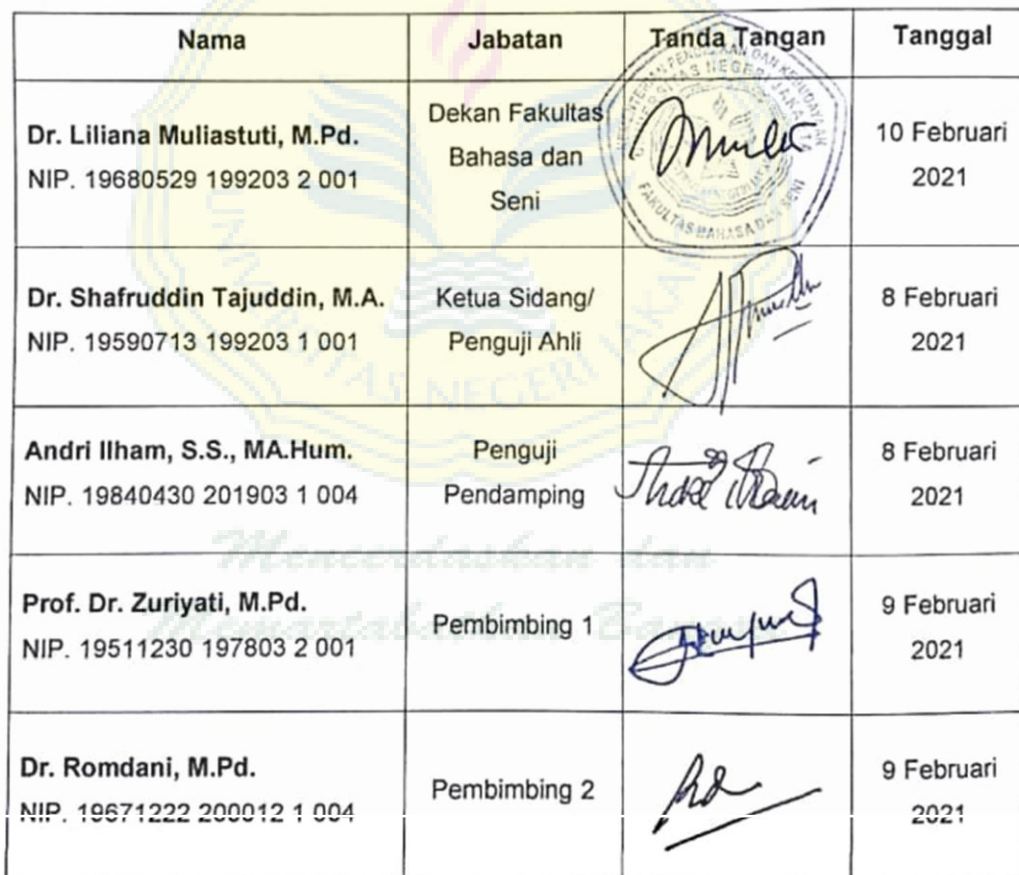 Nama Jabatan Tanda Tangan Tanggal
Dr. Liliana Muliastuti, M.Pd.
NIP. 19680529 199203 2 001
Dekan Fakultas
Bahasa dan
Seni
FAKULTAS BAHASA DAN SENI
10 Februari
2021
Dr. Shafruddin Tajuddin, M.A.
NIP. 19590713 199203 1 001
Ketua Sidang/
Penguji Ahli
8 Februari
2021
Andri Ilham, S.S., MA.Hum.
NIP. 19840430 201903 1 004
Penguji
Pendamping
8 Februari
2021
Prof. Dr. Zuriyati, M.Pd.
NIP. 19511230 197803 2 001
Pembimbing 1
9 Februari
2021
Dr. Romdani, M.Pd.
NIP. 19671222 200012 1 004
Pembimbing 2
9 Februari
2021
UNIVERSITAS NEGERI JAKARTA
Mencerdaskan dan
Memartabatkan Bangsa